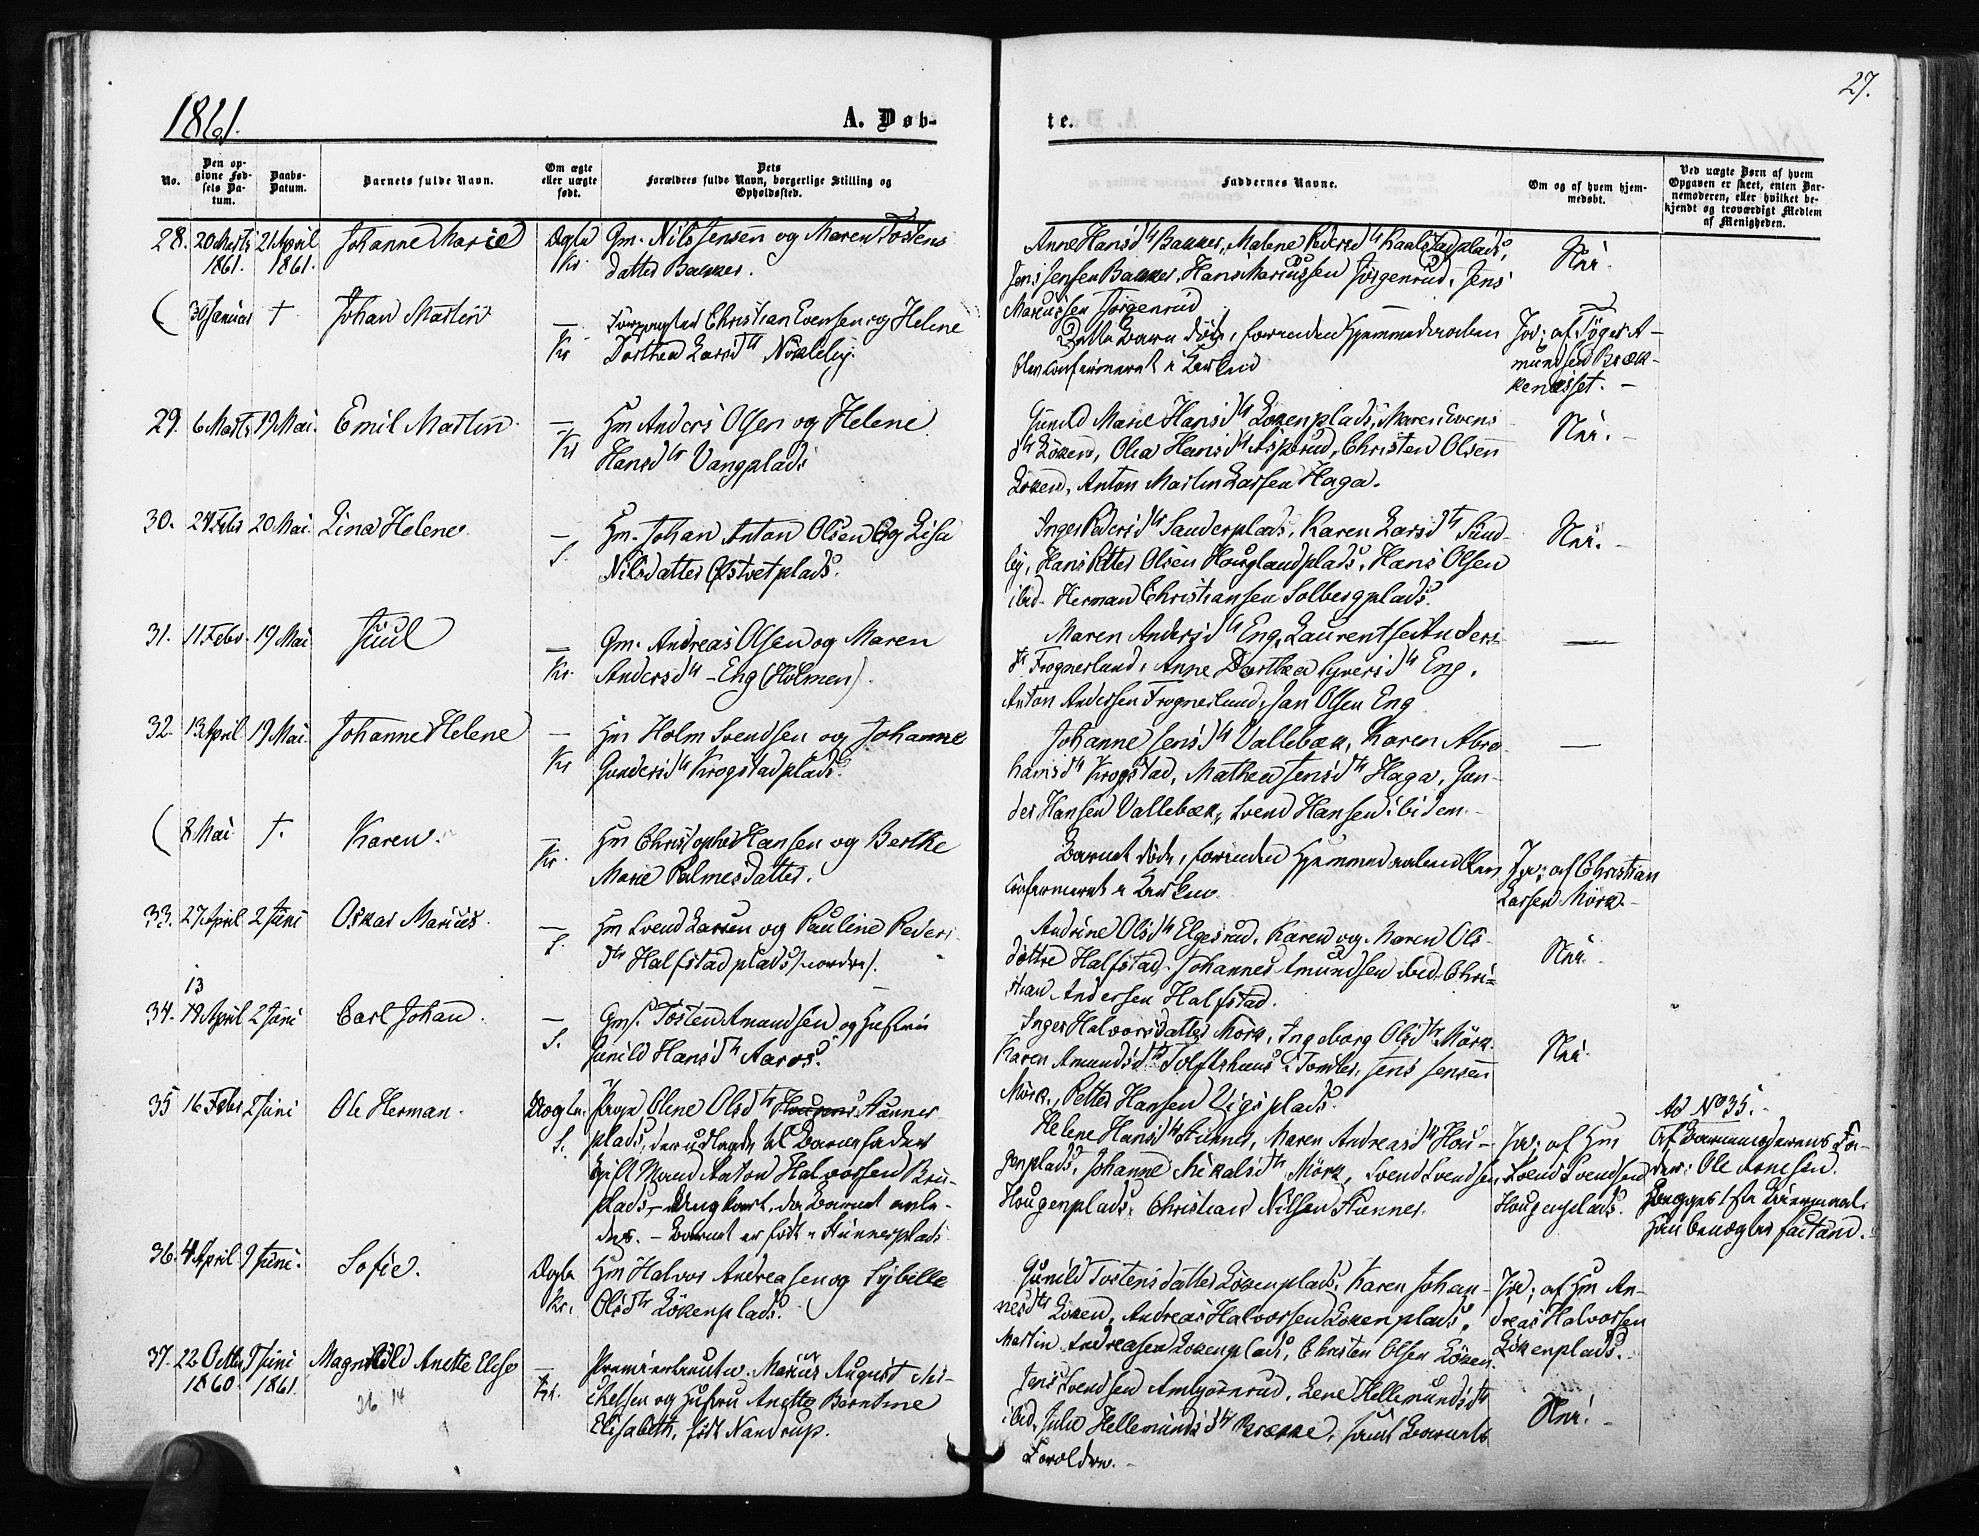 27.
1861.
A. Døb-
te.
No.
Den op-
givne Fød-
sels Da-
tum.
Daabs-
Datum.
Barnets fulde Navn.
Om ægte
eller uægte
født.
Dets
Forældres fulde Navn, borgerlige Stilling og
Opholdssted.
Faddernes Navne.
Om og af hvem hjem-
medøbt.
Ved uægte Børn af hvem
Opgaven er skeet, enten Bar-
nemoderen, eller hvilket be-
kjendt og troværdigt Medlem
af Menigheden.
28. 20 Marts 21 April Johanne Marie
1861. 1861.
Ægte
Kr
Gm. Nils Jensen og Maren Tostens
datter Bakker.
Anne Hansdtr Bakker, Malene Pedersdtr Kaalstadplads,
Jens Jensen Bakker, Hans Mariussen Jørgenrud, Jens
Mariussen Jørgenrud
Nei.
( 30 Januar † Johan Martin
—
Kr
Christian Evensen og Helene
Dorthea Larsdtr Nökleby.
Dette Barn døde, forinden Hjemmedaaben
blev confirmeret i Kirken
Jo; af Tøger A-
mundsen Bræk-
kenæsset. —
29. 6 Marts 19 Mai. Emil Martin.
—
Kr
Hm Anders Olsen og Helene
Hansdtr Vangplads
Gunild Marie Hansdtr Lökenplads, Maren Evens
dtr Löken, Olea Hansdtr Asperud, Christen Olsen
Löken, Anton Martin Larsen Haga.
Nei. —
30. 24 Febr 20 Mai. Lina Helene.
—
S.
Hm. Johan Anton Olsen og Lisa
Nilsdatter Østvetplads.
Inger Pedersdtr Sanderplads, Karen Larsdtr Sund-
by, Hans Petter Olsen Houglandplads, Hans Olsen
ibid. Herman Christiansen Solbergplads.
Nei. —
31. 11 Febr. 19 Mai Juul
—
Kr.
Gm. Andreas Olsen og Maren
Andersdtr – Eng (Holmen).
Maren Andersdtr Eng, Laurentse Anders-
dtr Frognerlund, Anne Dorthea Syversdtr Eng,
Anton Andersen Frognerlund, Jan Olsen Eng
—
32. 13 April 19 Mai. Johanne Helene
—
Kr
Hm Holm Svendsen og Johanne
Gundersdtr Krogstadplads.
Johanne Jensdtr Vallebæk, Karen Abra-
hamsdtr Krogstad, Mathea Jensdtr Haga, Gun-
der Hansen Vallebæk, Svend Hansen ibidem.
—
( 8 Mai †. Karen.
—
Kr.
Hm Christopher Hansen og Berthe
Marie Palmesdatter.
Barnet døde, forinden Hjemmedaaben blev
confirmeret i Kirken.
Jo; af Christian
Larsen Mörk.
33. 27 April 2 Juni Oskar Marius.
—
S.
Hm Svend Larsen og Pauline Peders-
dtr Halfstadplads (nordre).
Andrine Olsdtr Elgesrud, Karen og Maren Ols-
döttre Halfstad, Johannes Amundsen ibid. Chri-
stian Andersen Halfstad.
Nei.
13
34. 19 April 2 Juni Carl Johan.
—
S.
Gms. Tosten Amundsen og Hustru
Gunild Hansdtr Aaros.
Inger Halvorsdatter Mörk, Ingeborg Olsdtr Mörk.
Karen Amundsdtr Tolftshuus i Tomter, Jens Jensen
Mörk, Petter Hansen Ligsplads.
Nei.
35 16 Febr 2 Juni Ole Herman.
Uægte.
S.
Pige Oline Olsdtr Hougens Hunner
plads, der udlagde til Barnefader
Gift Mand Anton Halvorsen Bru-
plads, – Ungkarl, da Barnet avle-
des. – Barnet er født i Hunnerplads
Helene Hansdtr Hunner, Maren Andreasdtr Hou-
genplads, Johanne Mikalsdtr Mörk, Svend Svendsen
Hougenplads, Christian Nilsen Hunner.
Jo; af Hm
Svend Svendsen
Hougenplads.
Ad No 35.
Af Barnemoderens Fa-
der: Ole Arnesen.
Begges 1ste Leiermaal.
Han benægter factum.
36. 4 April 9 Juni. Sofie.
Ægte
Kr.
Hm Halvor Andreasen og Sybille
Olsdtr Lökenplads.
Gunild Tostensdatter Lökenplads, Karen Johan-
nesdtr Löken, Andreas Halvorsen Lökenplads,
Martin Andreasen Lökenplads, Christen Olsen Löken.
Jo; af Hm An-
dreas Halvorsen
Lökenplads.
37. 22 Octbr 9 Juni Magnhild Anette Elise
1860. 1861.
26 14
—
Kr.
Premierleutn. Marius August Mi-
chelsen og Hustru Anette Berntine
Elisabeth, født Nandrup.
Jens Svendsen Ambjörnrud, Lene Hellemundsdtr
ibid, Julie Hellemundsdtr Brække, samt Barnets
Forældre.
Nei. —